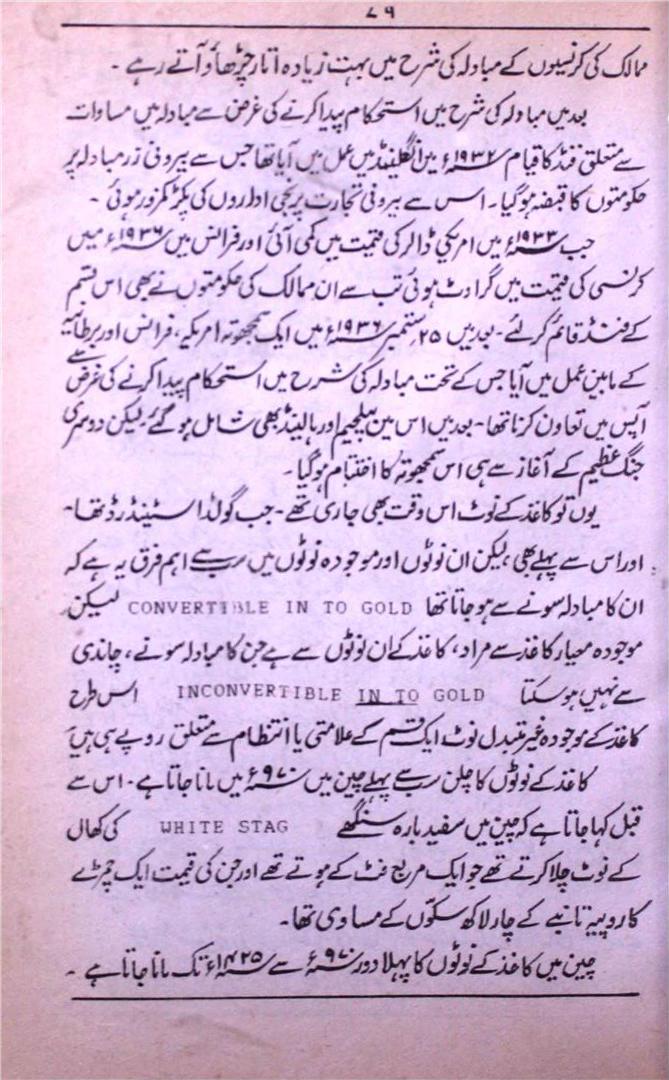 ۷۹
ممالک کی کرنسیوں کے مبادلہ کی شرح میں بہت زیادہ اتار چڑھاؤ آتے رہے ۔
بعد میں مبادلہ کی شرح میں استحکام پیدا کرنے کی غرض سے مبادلہ میں مساوات
سے متعلق فنڈ کا قیام ۱۹۳۲ء میں انگلینڈ میں عمل میں آیا تھا جس سے بیرونی زر مبادلہ پر
حکومتوں کا قبضہ ہو گیا ۔ اس سے بیرونی تجارت پر نجی اداروں کی پکڑ کمزور ہوئی ۔
جب ۱۹۳۳ء میں امریکی ڈالر کی قیمت میں کمی آئی اور فرانس میں ۱۹۳۶ء میں
کرنسی کی قیمت میں گراوٹ ہوئی تب سے ان ممالک کی حکومتوں نے بھی اس قسم
کے فنڈ قائم کر لئے ۔ بعد میں ۲۵ ستمبر ۱۹۳۶ء میں ایک سمجھوتہ امریکہ، فرانس اور برطانیہ
کے مابین عمل میں آیا جس کے تحت مبادلہ کی شرح میں استحکام پیدا کرنے کی غرض سے
آپس میں تعاون کرنا تھا ۔ بعد میں اس میں بیلجیم اور ہالینڈ بھی شامل ہو گئے لیکن دوسری
جنگ عظیم کے آغاز سے ہی اس سمجھوتہ کا اختتام ہو گیا ۔
یوں تو کاغذ کے نوٹ اس وقت بھی جاری تھے ۔ جب گولڈ اسٹینڈرڈ تھا ۔
اور اس سے پہلے بھی ، لیکن ان نوٹوں اور موجودہ نوٹوں میں سب سے اہم فرق یہ ہے کہ
ان کا مبادلہ سونے سے ہو جاتا تھا CONVERTIBLE IN TO GOLD لیکن
موجودہ معیار کاغذ سے مراد، کاغذ کے ان نوٹوں سے ہے جن کا مبادلہ سونے ، چاندی
سے نہیں ہو سکتا INCONVERTIBLE IN TO GOLD اس طرح
کاغذ کے موجودہ غیر متبدل نوٹ ایک قسم کے علامتی یا انتظام سے متعلق روپے ہی ہیں
کاغذ کے نوٹوں کا چلن سب سے پہلے چین میں ۹۷۰ء میں مانا جاتا ہے ۔ اس سے
قبل کہا جاتا ہے کہ چین میں سفید بارہ سنگھے WHITE STAG کی کھال
کے نوٹ چلا کرتے تھے جو ایک مربع فٹ کے ہوتے تھے اور جن کی قیمت ایک چمڑے
کا روپیہ تانبے کے چار لاکھ سکّوں کے مساوی تھا ۔
چین میں کاغذ کے نوٹوں کا پہلا دور ۹۷۰ء سے ۱۴۲۵ء تک مانا جاتا ہے ۔